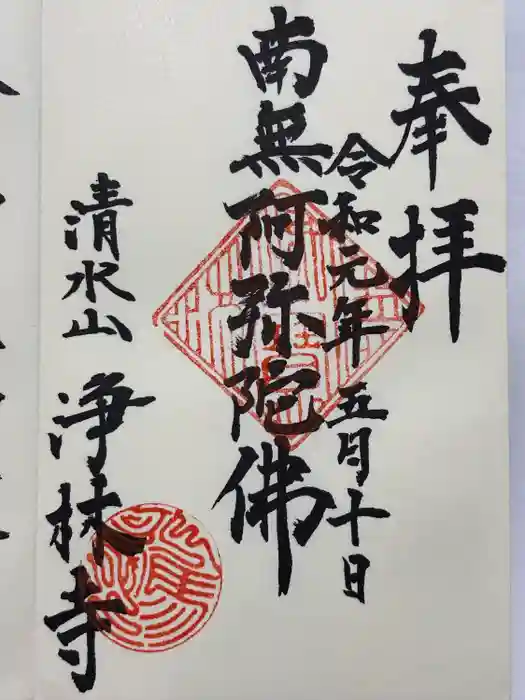 奉拝
令和元年 五月十日
南無阿弥陀佛
清水山
浄林寺